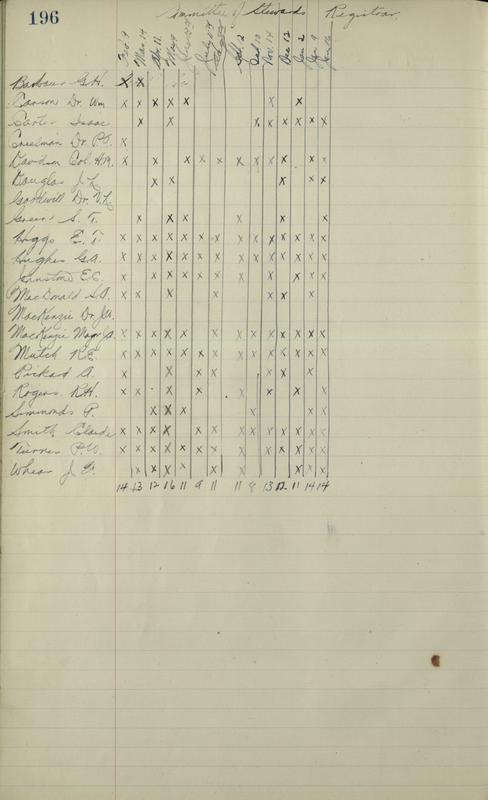 196
Committee of Stewards Registrar
Feb. 9 Mar 14 Apr. 11 May 9 Sept. 12 Oct 10 Nov. 14 Dec 12 Jan 2 Jan 9
Barbour G.H. x x
Carson Dr. Wm x x x x x x x
Carter Isaac x x x x x x x x
Creelman Dr. P.A. x
Davidson Col. H.M. x x x x x x x x x x x
Douglas J. L. x x x x x
Goodwill Dr. V.L.
Green S. T. x x x x x x
Higgs E. T. x x x x x x x x x x x x x x
Hughes G.A. x x x x x x x x x x x x x x
Johnstone E.C. x x x x x x x x x x
MacDonald S.A. x x x x x x x
MacKenzie Dr. J.A.
MacKenzie Major J.A. x x x x x x x x x x x x x
Mutch R.E. x x x x x x x x x x x x x x
Pickard A. x x x x x x x
Rogers R.H. x x x x x x x
Simmonds P. x x x x x x
Smith Claude x x x x x x x x x x x x x
Turner P.W. x x x x x x x x x x x x
Whear J. E. x x x x x x x x x
14 13 12 16 11 9 11 11 9 13 12 11 14 14